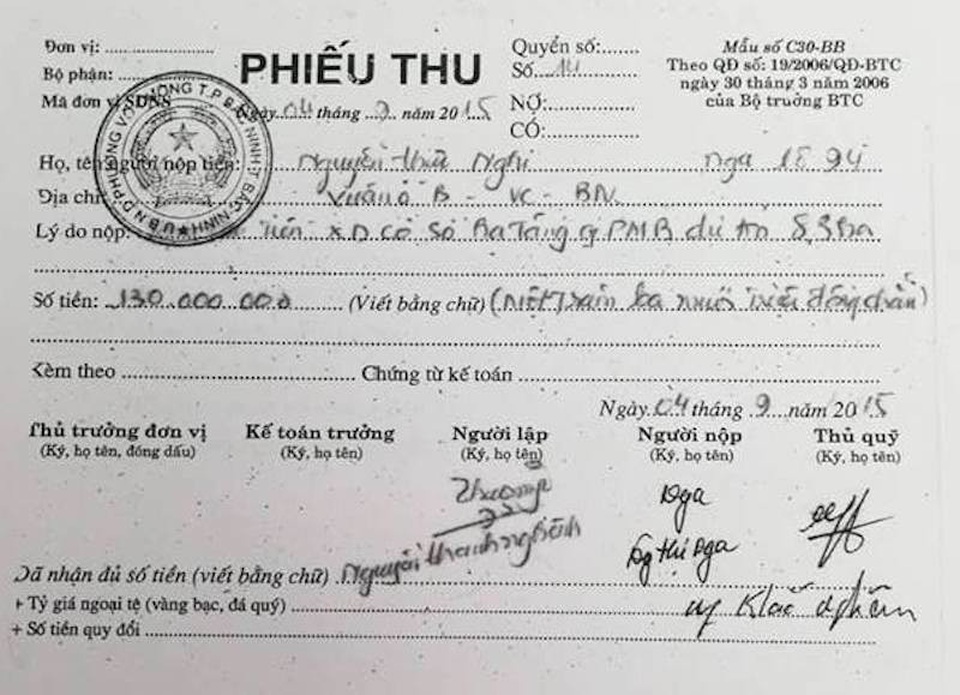 Đơn vị: ....................
Bộ phận: ...............
Mã đơn vị SDNS
PHIẾU THU
Ngày 04 tháng 9 năm 2015
Quyển số:.......
Số.... 14
NỢ:...............
CÓ:...............
Mẫu số C30-BB
Theo QĐ số: 19/2006/QĐ-BTC
ngày 30 tháng 3 năm 2006
của Bộ trưởng BTC
Họ, tên người nộp tiền: Nguyễn Nghi Nga 18 94
Địa chỉ B - VC - BN.
Lý do nộp: Tiền XD cơ sở Hạ Tầng PMB dự án
Số tiền: 130.000.000 (Viết bằng chữ) (Một trăm ba mươi triệu đồng chẵn)
Kèm theo .............................. Chứng từ kế toán ..............................
Ngày 04 tháng 9 năm 2015
Thủ trưởng đơn vị
(Ký, họ tên, đóng dấu)
Kế toán trưởng
(Ký, họ tên)
Người lập
(Ký, họ tên)
Người nộp
(Ký, họ tên)
Thủ quỹ
(Ký, họ tên)
Nga
Thị Nga
Nguyễn Thanh
Đã nhận đủ số tiền (viết bằng chữ)
+ Tỷ giá ngoại tệ (vàng bạc, đá quý)
+ Số tiền quy đổi